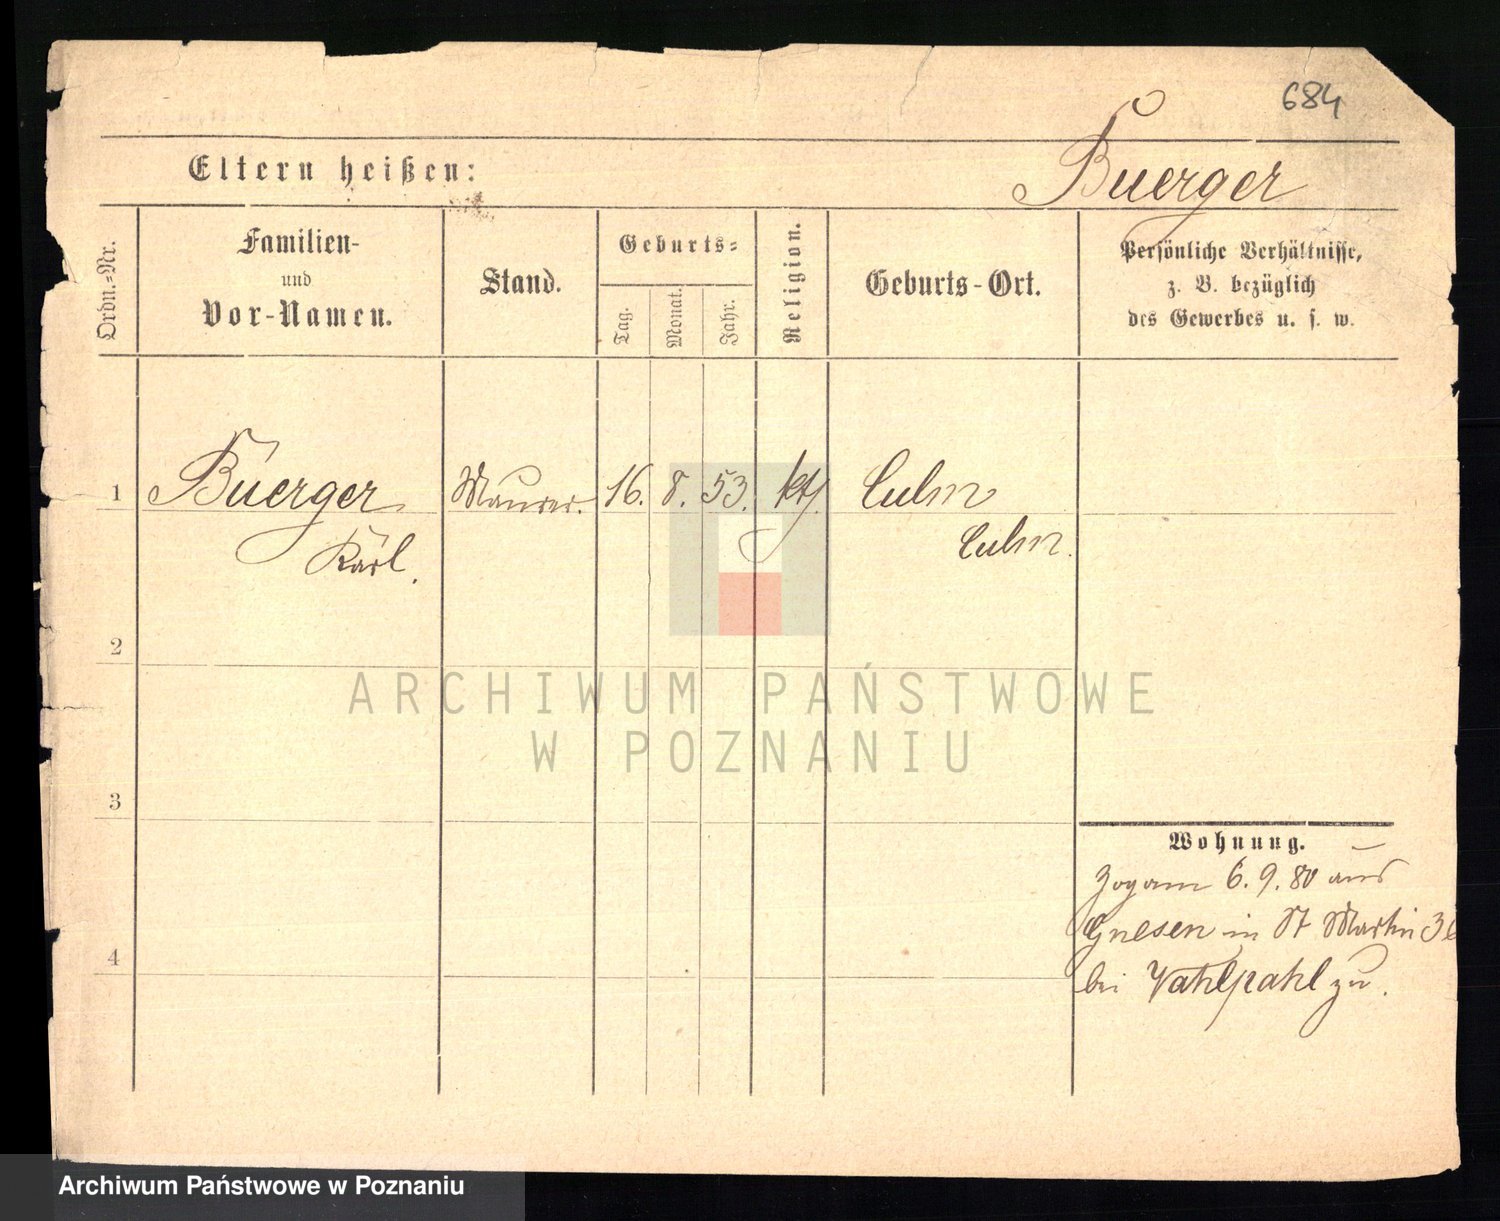 684
Eltern heißen:
Buerger
Ordn.-Nr.
Familien-
und
Vor-Namen.
Stand.
Geburts-
Tag.
Monat.
Jahr.
Religion.
Geburts-Ort.
Persönliche Verhältnisse,
z. B. bezüglich
des Gewerbes u. s. w.
1 Buerger Maurer. 16. 8. 53. kth. Culm
Karl. Culm.
2
3
4
Wohnung.
Zog am 6. 9. 80 aus
Gnesen in St Martin 36
bei Vahlpahl zu.
ARCHIWUM PAŃSTWOWE
W POZNANIU
Archiwum Państwowe w Poznaniu